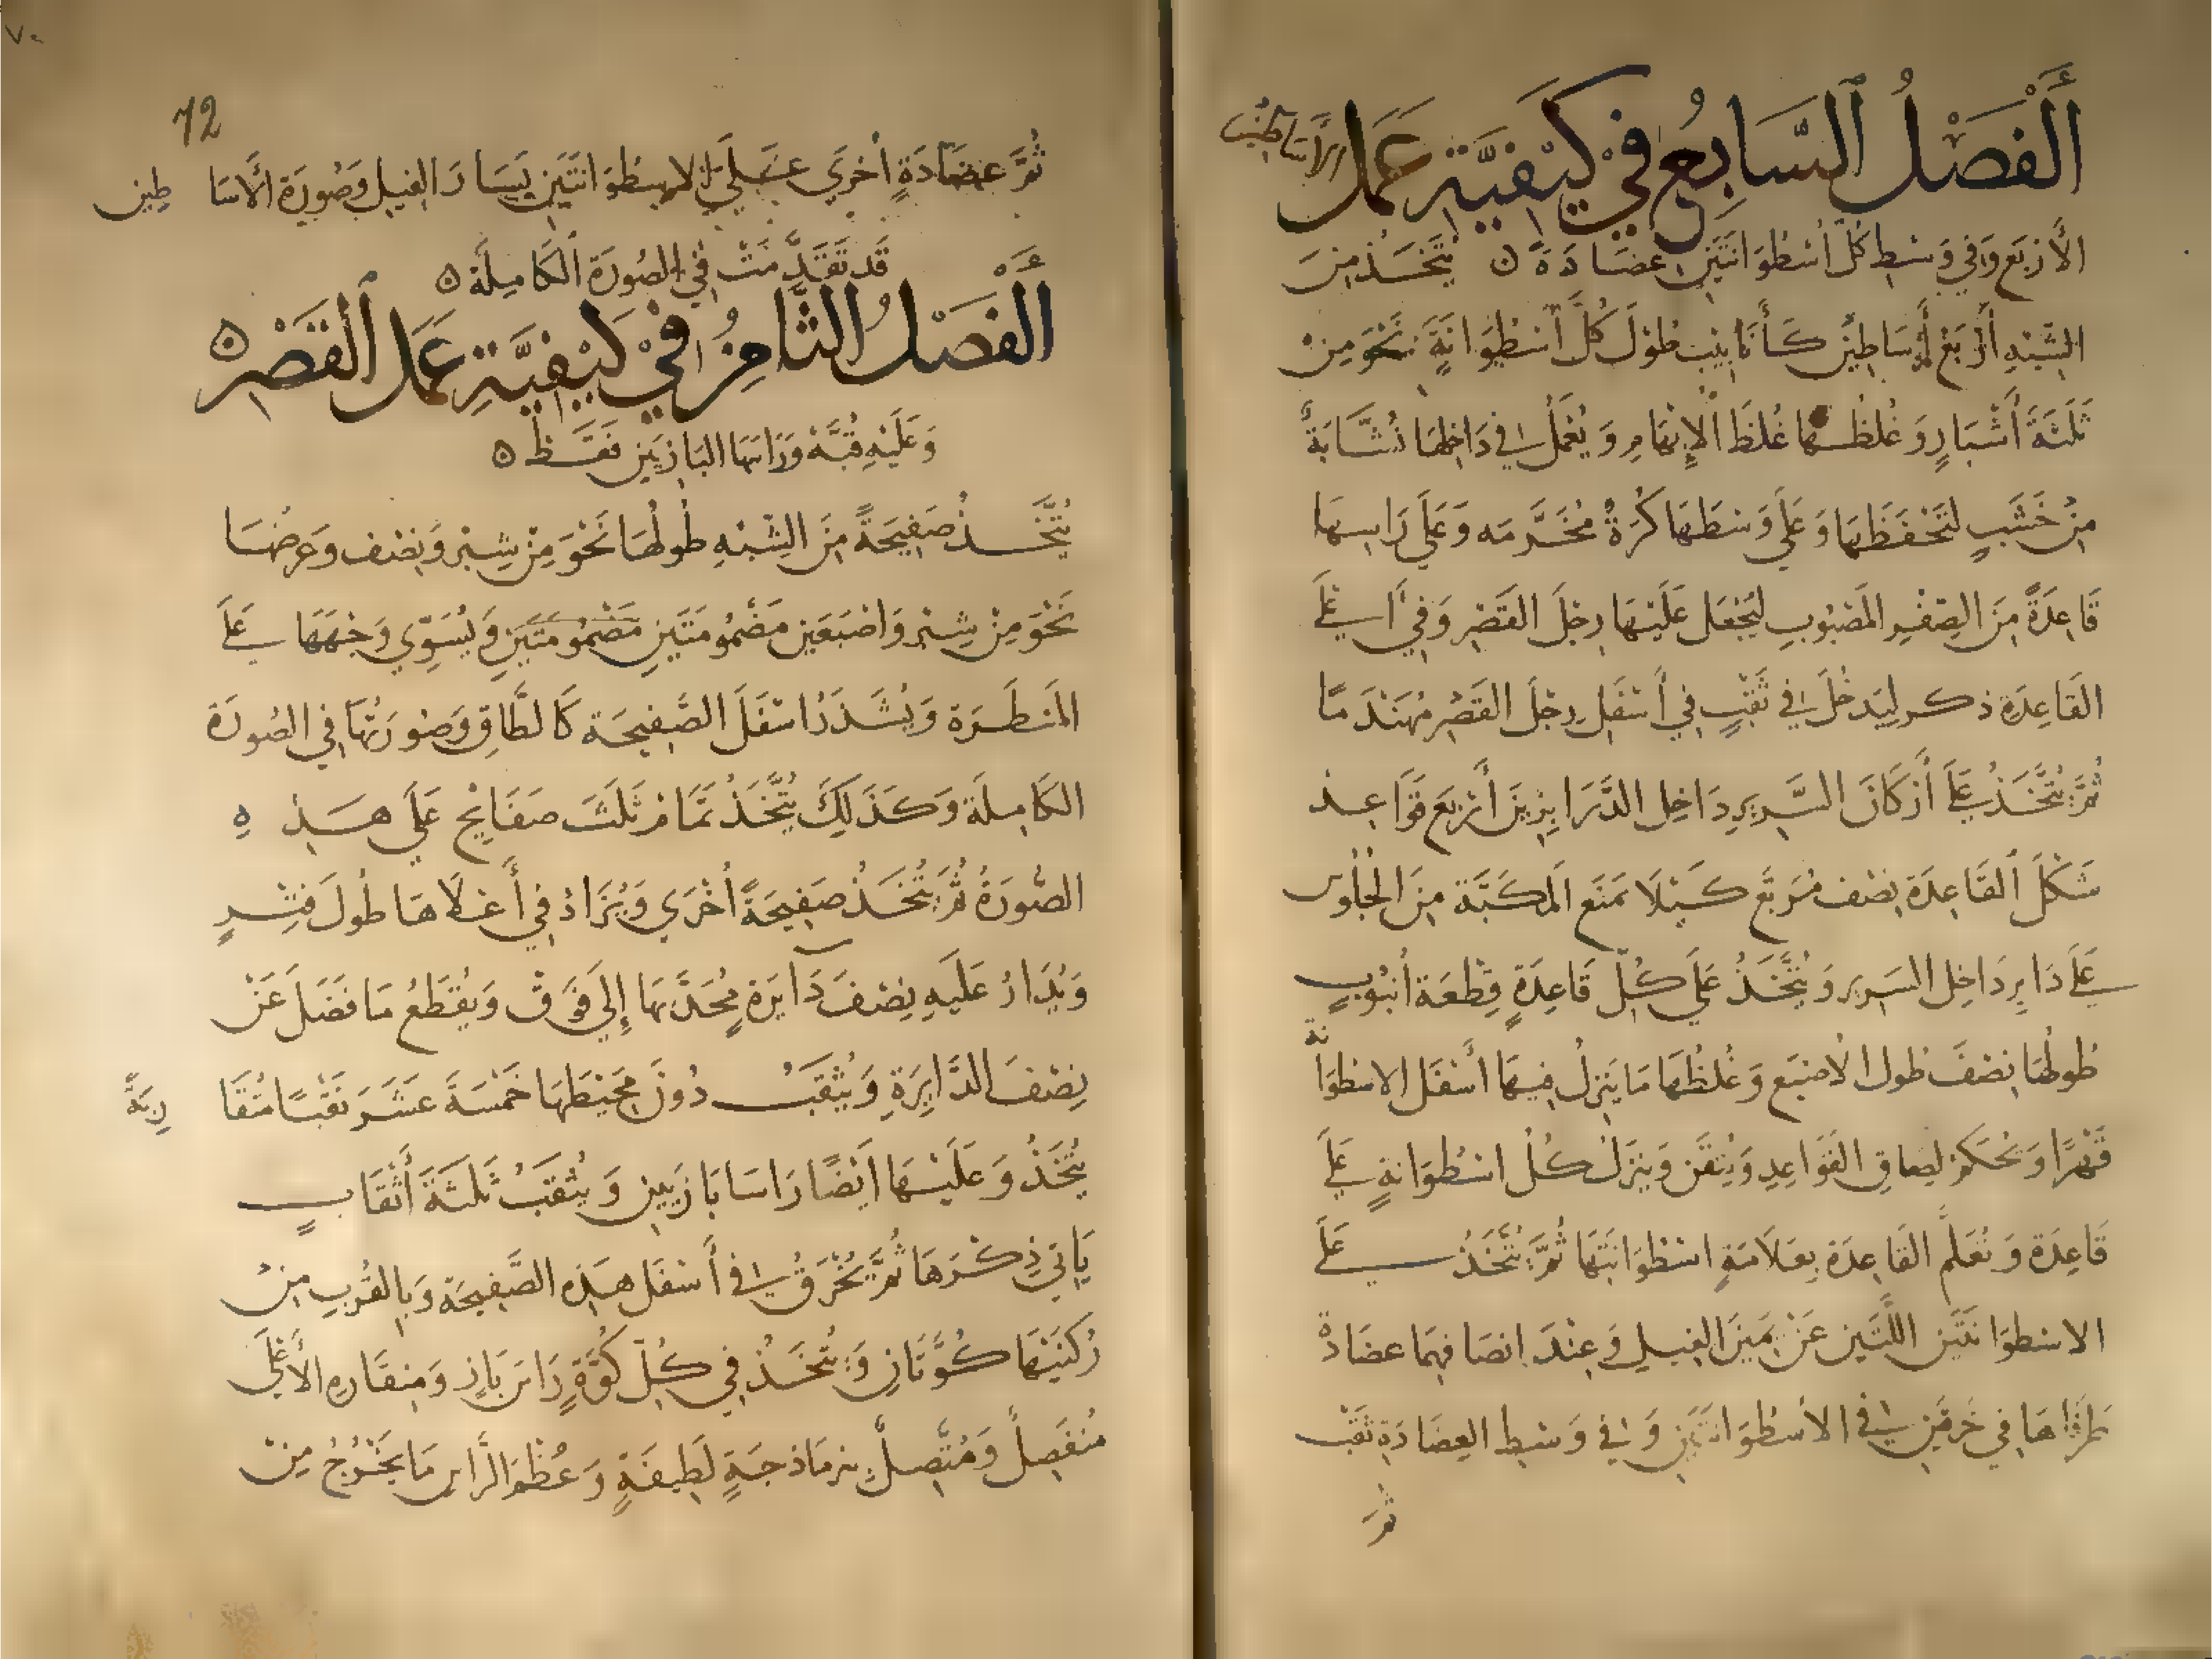 اَلْفَصْلُ ٱلسَّابِعُ فِي كَيْفِيَّةِ عَمَلِ الأَسَاطِين
الأَرْبَع وَفِي وَسْطِ كُلّ أُسْطُوَانَتَيْنِ عضَادَةٌ ۞ يُتَّخَذُ مِنَ
الشَّبَهِ أَرْبَعُ أَسَاطِيْن كَأَنَابِيْب طُوْلُ كُلّ أُسْطُوَانَةٍ نَحْوَ مِنْ
ثَلَثَة أَشْبَارٍ وَغُلْظُهَا غُلْظُ الْإِبْهَامِ وَيُعْمَلُ فِي دَاخِلِهَا نُشَّابَةٌ
مِنْ خَشَبٍ لتَحْفَظَهَا وَعَلَى وَسْطِهَا كُرَةٌ مُخَرَّمَه وَعَلَى رَاسِهَا
قَاعِدَةٌ مِنَ الصِفْرِ المَصْبُوبِ ليُجْعَل عَلَيْهَا رِجْلَ القَصْرِ وَفِي أَعْلَى
القَاعِدَةِ ذكر لِيَدْخُلَ فِي ثَقْبٍ فِي أَسْفَلِ رِجْلِ القَصْرِ مُهَنْدَمًا
ثُمَّ يُتَّخَذُ عَلَى أَرْكَانَ السَّرِيرِ دَاخِلَ الدَّرَابِزِيْنَ أَرْبَع قَوَاعِد
شَكْلُ القَاعِدَة نِصْف مُرَبَّع كَيْلَا تَمْنَع المَركَبَّة مِنَ الجُلُوس
عَلَى دَايِر دَاخِل السَرِير وَيُتَّخَذُ عَلَى كُلِّ قَاعِدَةٍ قِطْعَة أُنْبُوبٍ
طُولُهَا نِصْفَ طُول الأصْبَع وَغُلْظُهَا مَا يَنْزِلُ فِيهَا أَسْفَل الاسطوَانة
قَهْرًا وَيُحْكَم لِصَاقِ القَوَاعِدِ وَيُتقَن وَيَنْزلُ كُلُّ اسْطُوَانةٍ عَلَى
قَاعِدَة وَتُعَلَّمُ القَاعِدَة بِعَلَامَةِ اسْطُوَانَتِهَا ثُمَّ يُتَّخَذُ عَلَى
الاسْطوَانَتَيْنِ اللَّتَيْنِ عَنْ يَمِيْن الفِيلِ وَعِنْدَ انصَافِهِمَا عضَادَة
طَرَفَاهَا فِي خَرقَيْنِ فِي الأسْطُوَانَتَيْنِ وَفِي وَسْطِ العِضَادَةِ ثَقْبٌ
ثُمَّ
٧٠
72
ثُمَّ عضَادَةٍ أُخْرَى عَلَى الاسطُوَانَتَيْنِ يَسَارَ الفِيلِ وَصُورَة الأَسَاطِين
قَد تَقَدَّمَتْ فِي الصُورَة الكَامِلَة ۞
اَلْفَصْلُ الثَّامِنُ فِي كَيْفِيَّةِ عَمَلِ ٱلقَصْرِ ۞
وَعَلَيْهِ قُبَّة وَرَاسَهَا البَازيَيْنِ فَقَط ۞
يُتَّخَذُ صَفِيحَةً مِنَ الشَبَهِ طُولُهَا نَحْوَ مِنْ شِبْرٍ وَنِصْف وَعَرضُهَا
نَحْوَ مِنْ شِبْرٍ وَاصْبَعَيْن مَضْمُومَتَيْنِ مَضْمُومَتَيْنِ وَيُسَوِّي وَجْهَهَا عَلَى
المَسْطَرَة وَيُشَدَرُ اسْفَلَ الصَّفِيحَة كَالطَّاقِ وَصُورَتُهَا فِي الصُورَة
الكَامِلَة وَكَذَلِكَ يُتَّخَذُ تَمَام ثَلَثَ صَفَايِحَ عَلَى هَذِهِ
الصُّورَةُ ثُمَّ يُتَّخَذُ صَفِيحَةً أُخْرَى وَيُزَادُ فِي أَعْلَاهَا طُولَ فِتْرٍ
وَيُدَارُ عَلَيهِ نِصْفَ دَايَرة مُحَدَّبهَا إِلَى فَوَق وَيُقْطَعُ مَا فَضَلَ عَنْ
نِصْفَ الدَّايِرَةِ وَيُثْقَبُ دُونَ مُحِيْطَهَا خَمْسَةَ عَشَرَ ثَقْبًا مُتَقَارِبَةً
يُتَّخَذُ وَعَلَيْهَا أَيْضًا رَاسَا بَازَيَيْنِ وَيُثْقَبُ ثَلَثَةَ أَثْقَابٍ
يَاتِي ذِكْرَهَا ثُمَّ يُخْرَقُ فِي أَسْفَل هَذِه الصَّفِيحَة وَبِالقُرْبِ مِنْ
رُكْنَيْهَا كُوَّتَانِ وَيُتَّخَذُ فِي كُلِّ كُوَّةٍ رَاسَ بَازٍ وَمِنقَارِهِ الأَعْلَى
مُنْفَصِلٌ وَمُتَّصِلٌ بِنرمَاذجَةٍ لَطِيفَةٍ وَعُظْمُ الرَّاس مَا يَخْرُجُ مِنْ